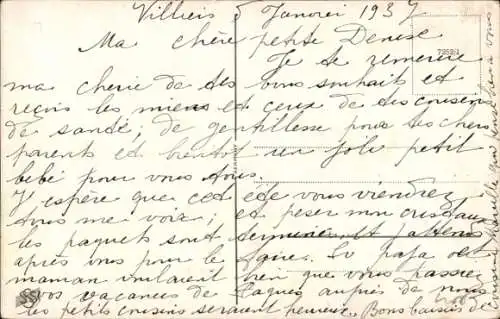 Villiers 5 Janvier 1937
Ma chère petite Denise
7252/1
Je te remercie
ma cherie de tes bons souhaits et
reçois les miens et ceux de tes cousins
de santé; de gentillesse pour tes chers
parents et bientot un joli petit
bébé pour vous tous.
J'espère que cet été vous viendrez
tous me voir; et peser mon
les paquets sont terminés et
après vous pour le faire. Si papa et
maman voulaient bien que vous passiez
vos vacances de Paques auprès de nous
les petits cousins seraient heureux. Bons baisers de